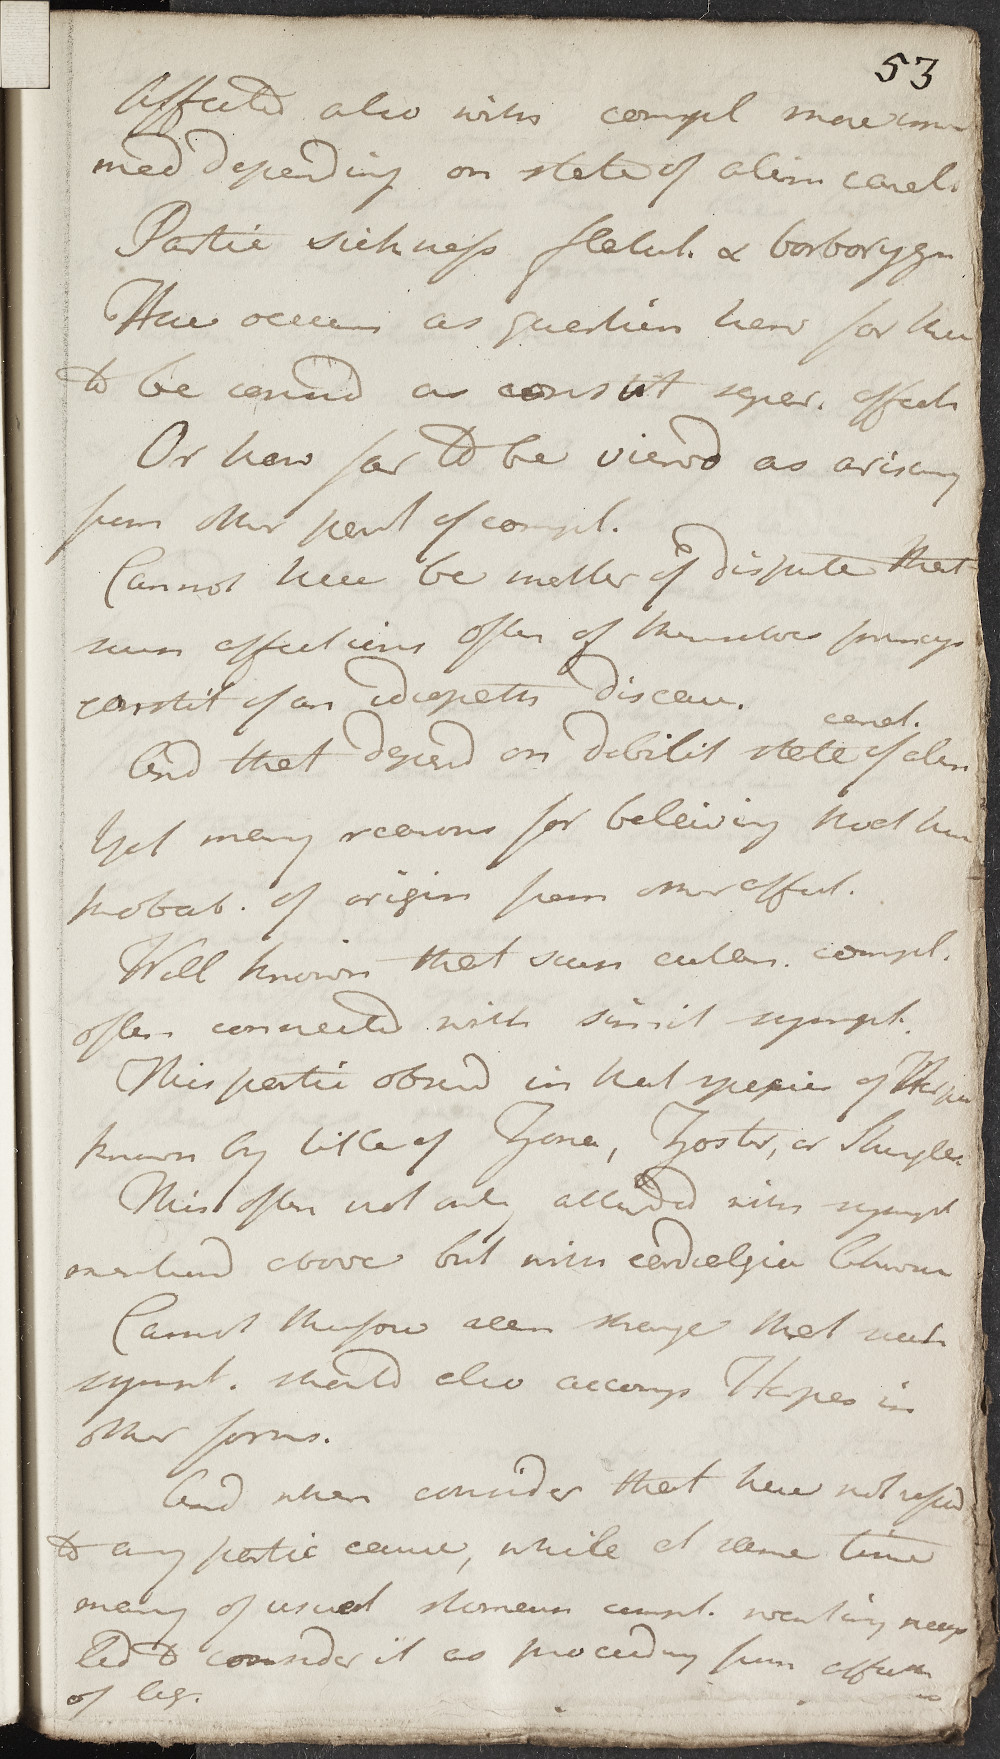 53
Affected also with compl more imm
med depending on state of alim canal.
Partic sickness flatul. & borborygm
Here occurs as question how far here
to be consid as constit separ. affect
Or how far to be viewd as arising
from other part of compl.
Cannot here be matter of dispute that
such affections often of themselves princip
constit of an idiopath disease.
canal.
And that depend on debilit state of alim
Yet many reasons for beleiving that here
probab. of origin from other affect.
Well known that such cutan. compl.
often connected with simil sympt.
This partic observd in that species of Herpes
known by title of Zona, Zoster, or Shingles
This often not only attended with sympt
mentiond above but with cardialgia
Cannot therefore seem strange that such
sympt. should also accomp Herpes in
other forms.
And when consider that here not referd
to any partic cause, while at same time
many of usual stomach compl. wanting
led to consider it as proceeding from affection
of leg.